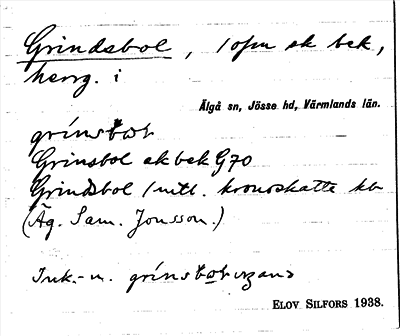 Grindsbol, 1 ofm ek bek,
herrg. i
Älgå sn, Jösse hd, Värmlands län.
grinsbot
Grinsbol ek bek G70
Grindsbol 1 mtl. kronoskatte kb
(Äg. Sam. Jonsson.)
Ink.-n.
ELOV SILFORS 1938.